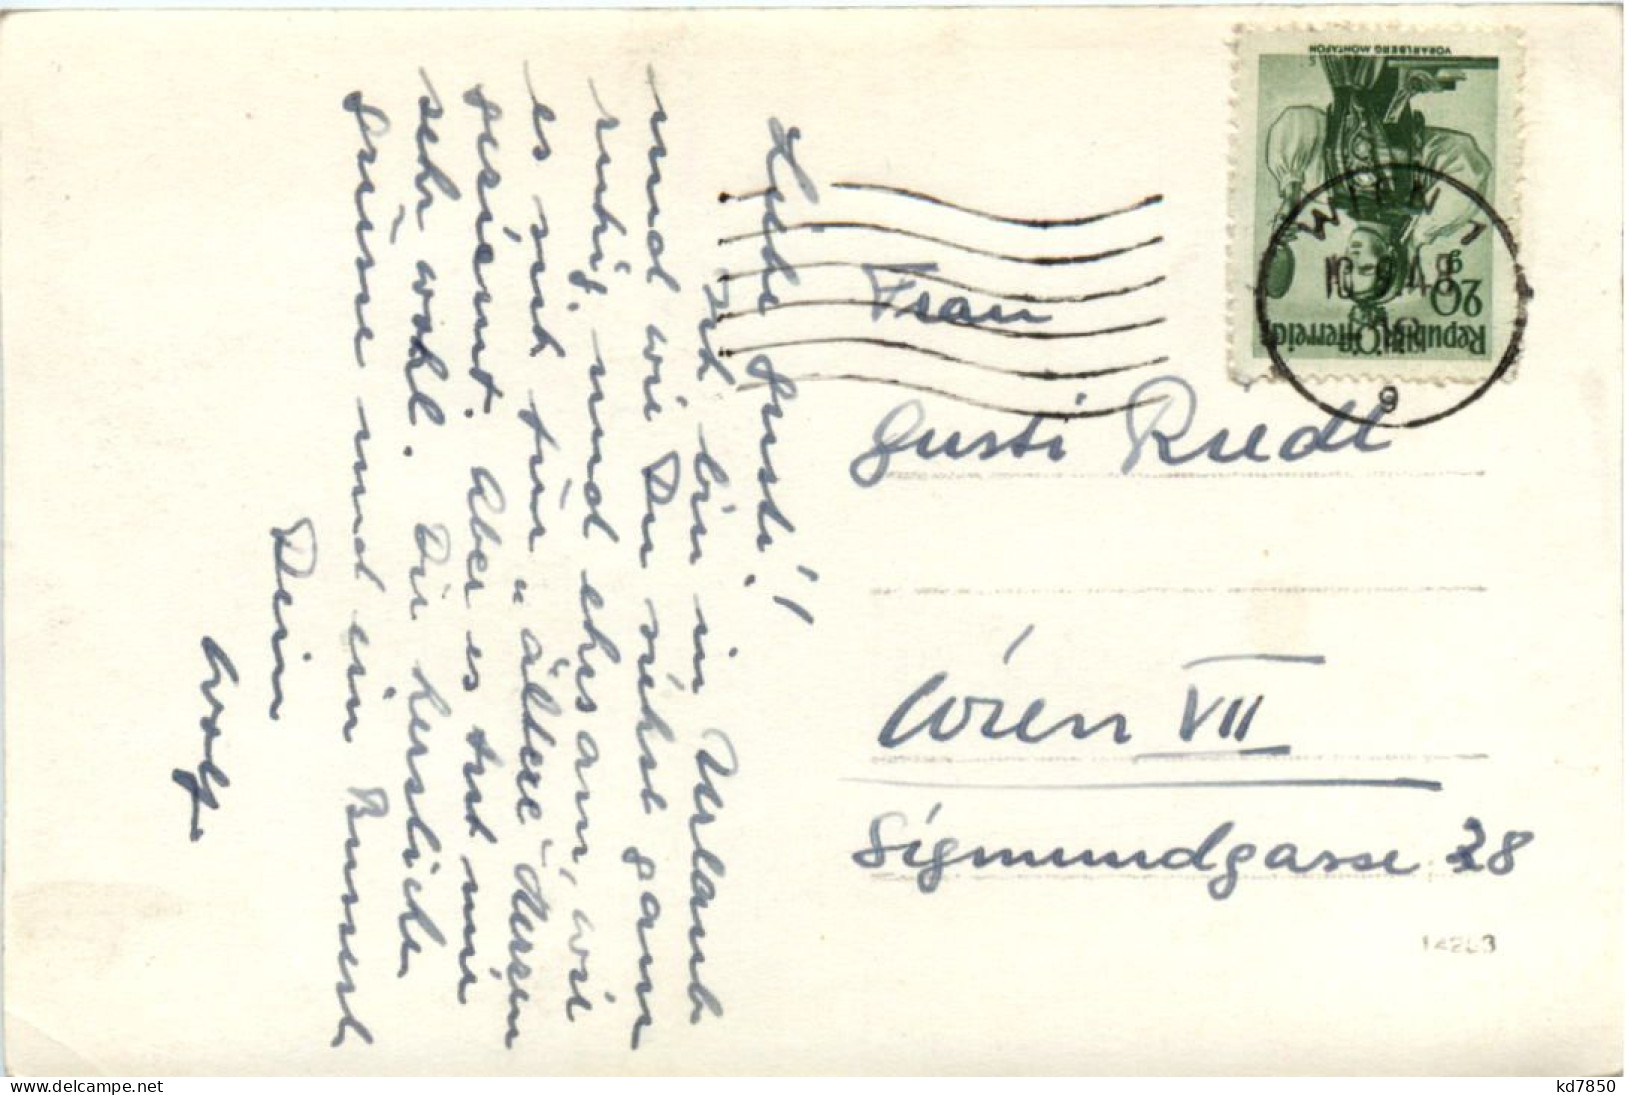 Liebe Gusti!
Ich bin in Urlaub
und wie Du siehst ganz
ruhig und ehrsam, wie
es sich für "ältere" Herren
geziemt. Aber es tut mir
sehr wohl. Dir herzliche
Grüsse und ein Bussert
Dein
Wolf.
Frau
Gusti Riedl
Wien VII
Sigmundgasse 28
WIEN 1
9
Republik Österreich
20 g
VORARLBERG MONTAFON
delcampe.net
kd7850